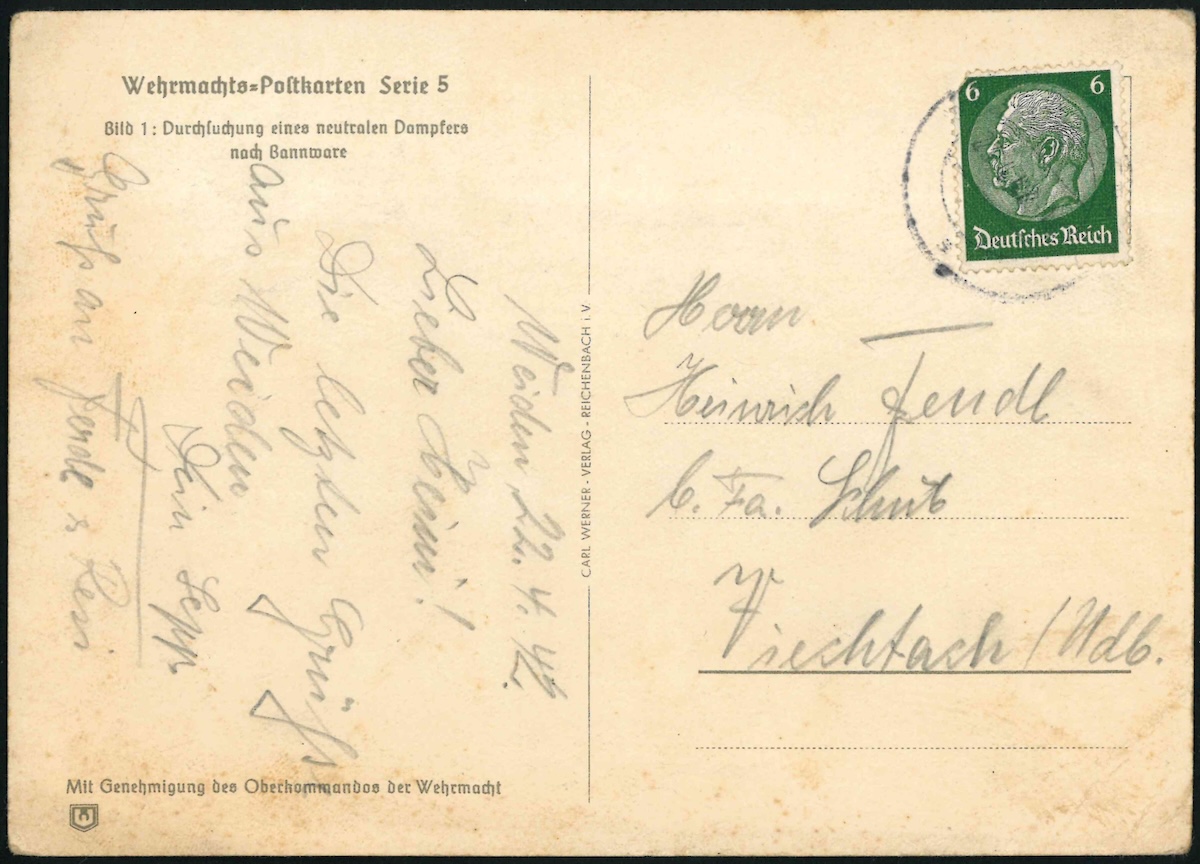 Wehrmachts=Postkarten Serie 5
Bild 1: Durchsuchung eines neutralen Dampfers
nach Bannware
Weiden 22. 4. 42.
Lieber Heini!
Die letzten Grüße
aus Weiden
Dein Sepp.
Gruß an Ferdl & Resi
Mit Genehmigung des Oberkommandos der Wehrmacht
CARL WERNER - VERLAG - REICHENBACH i. V.
6 6
Deutsches Reich
Herrn
Heinrich Fendl
b. Fa. Schub
Viechtach/Ndb.